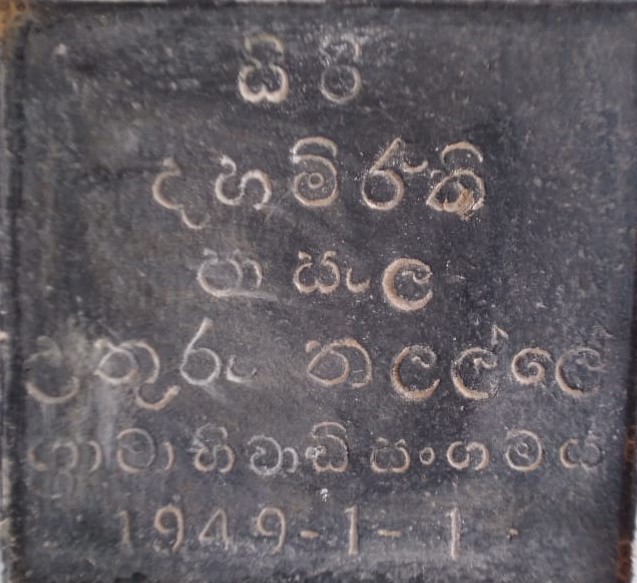 සිරි
දහම් රැකි
පාසැල
උතුරු තලල්ලේ
ග්‍රාමාභිවෘඩි සංගමය
1949-1-1-